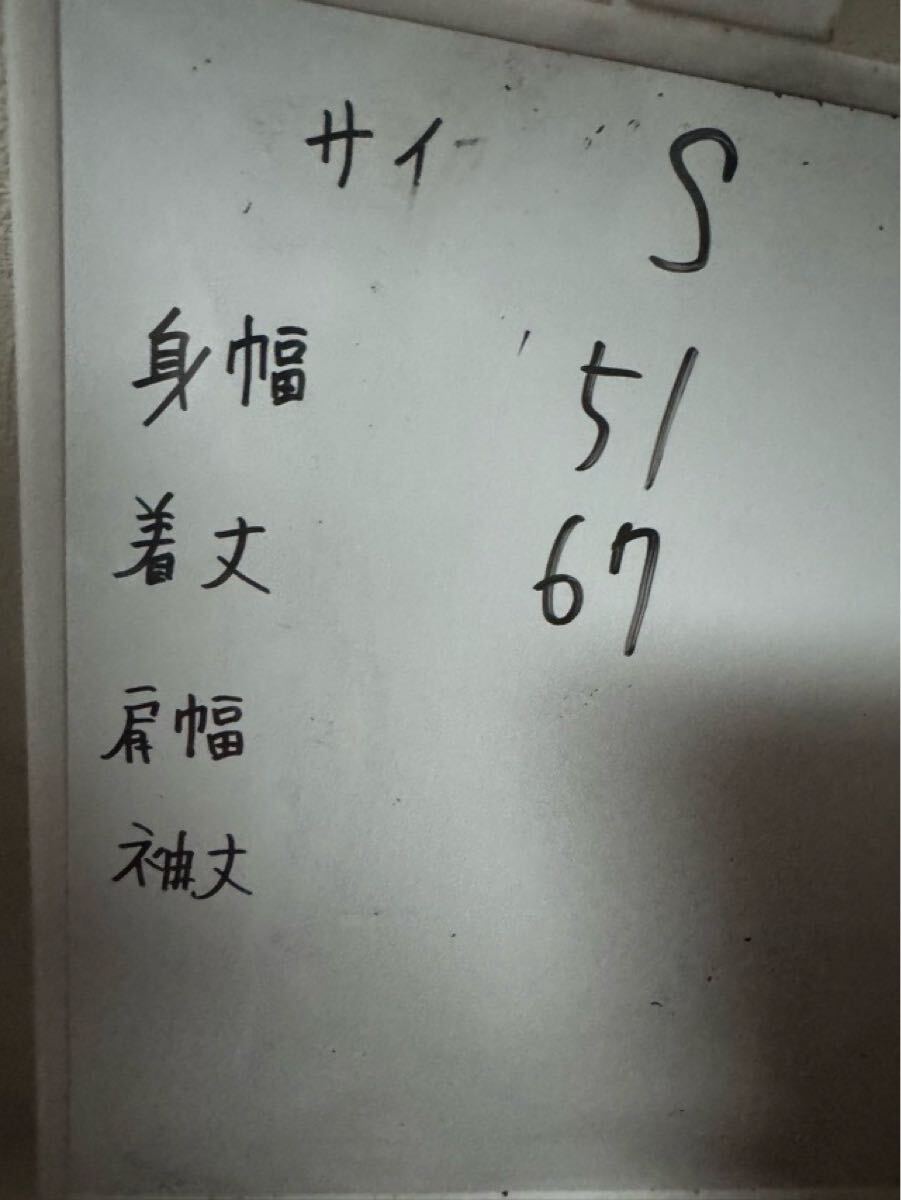 サイ S
身幅 51
着丈 67
肩幅
袖丈